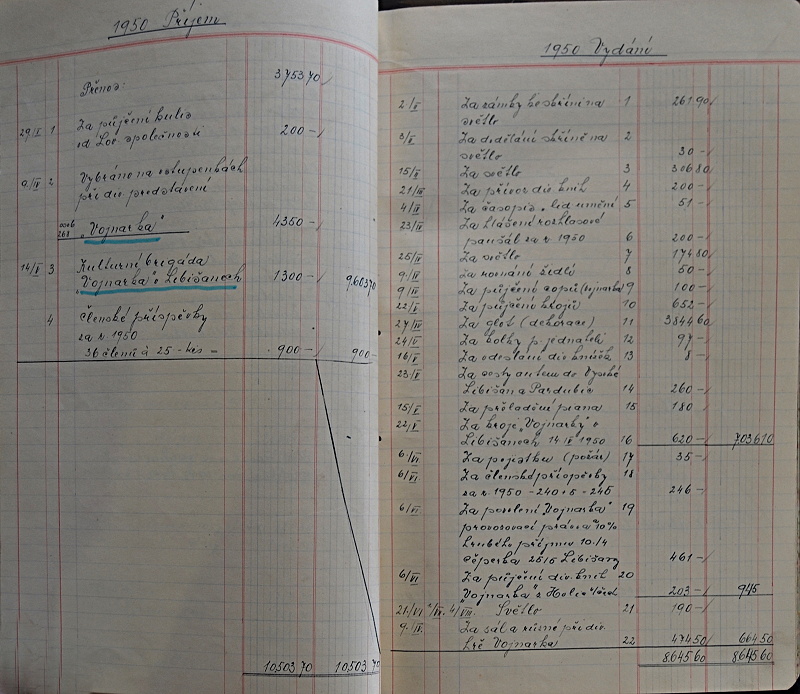 1950 Příjem
Přenos: 3.753 70
29/I 1 Za půjčení kulis
od Lov. společnosti 200 -
9/IV 2 Vybráno na vstupenkách
při div. představení
osob 268 „Vojnarka“ 4350 -
14/V 3 Kulturní brigáda
„Vojnarka“ v Libišanech 1300 - 9.603 70
4 Členské příspěvky
za r. 1950
36 členů à 25 - kčs = 900 - 900 -
10.503 70 10.503 70
1950 Vydání
2/I Za zámky ke skříni na 1 261 90
světlo
3/I Za dodělání skříně na 2
světlo 30 -
15/I Za světlo 3 306 80
21/III Za přívoz div. knih 4 200 -
4/II Za časopis „lid. umění 5 51 -
23/IV Za hlášení rozhlasové
paušál za r. 1950 6 200 -
25/V Za světlo 7 174 80
9/IV Za rovnání židlí 8 50 -
9/IV Za půjčení (vojnarka) 9 100 -
22/V Za půjčení krojů 10 652 -
27/IV Za (dekorace) 11 3844 60
24/V Za p. jednateli 12 97 -
16/V Za odeslání div. knížek 13 8 -
23/V Za cesty autem do Vysoké
Libišan a Pardubic 14 260 -
15/V Za přeladění piana 15 180 -
22/V Za kroje „Vojnarky“ v
Libišanech 14/V 1950 16 620 - 7036 10
6/VI Za pojistku (požár) 17 35 -
6/VI Za členské příspěvky 18
za r. 1950 - 240 + 5 - 245 246 -
6/VI Za povolení „Vojnarka“ 19
provozovací práva 10%
hrubého příjmu 10./4
Čeperka 25/5 Libišany 461 -
6/VI Za půjčení div. knih 20
„Vojnarka“ z 203 - 945
Světlo 21 190 -
9/IV. Za sál a různé při div.
hře Vojnarka 22 474 50 664 50
8.645 60 8.645 60